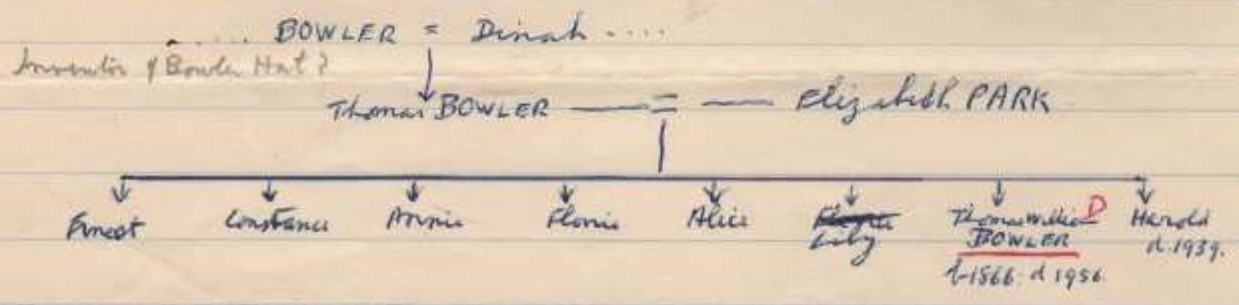 ..... BOWLER = Dinah ....
Inventor of Bowler Hat?
Thomas BOWLER = Elizabeth PARK
Ernest Constance Annie Florrie Alice Lily Thomas William D Harold
BOWLER d. 1939.
b-1866. d 1956